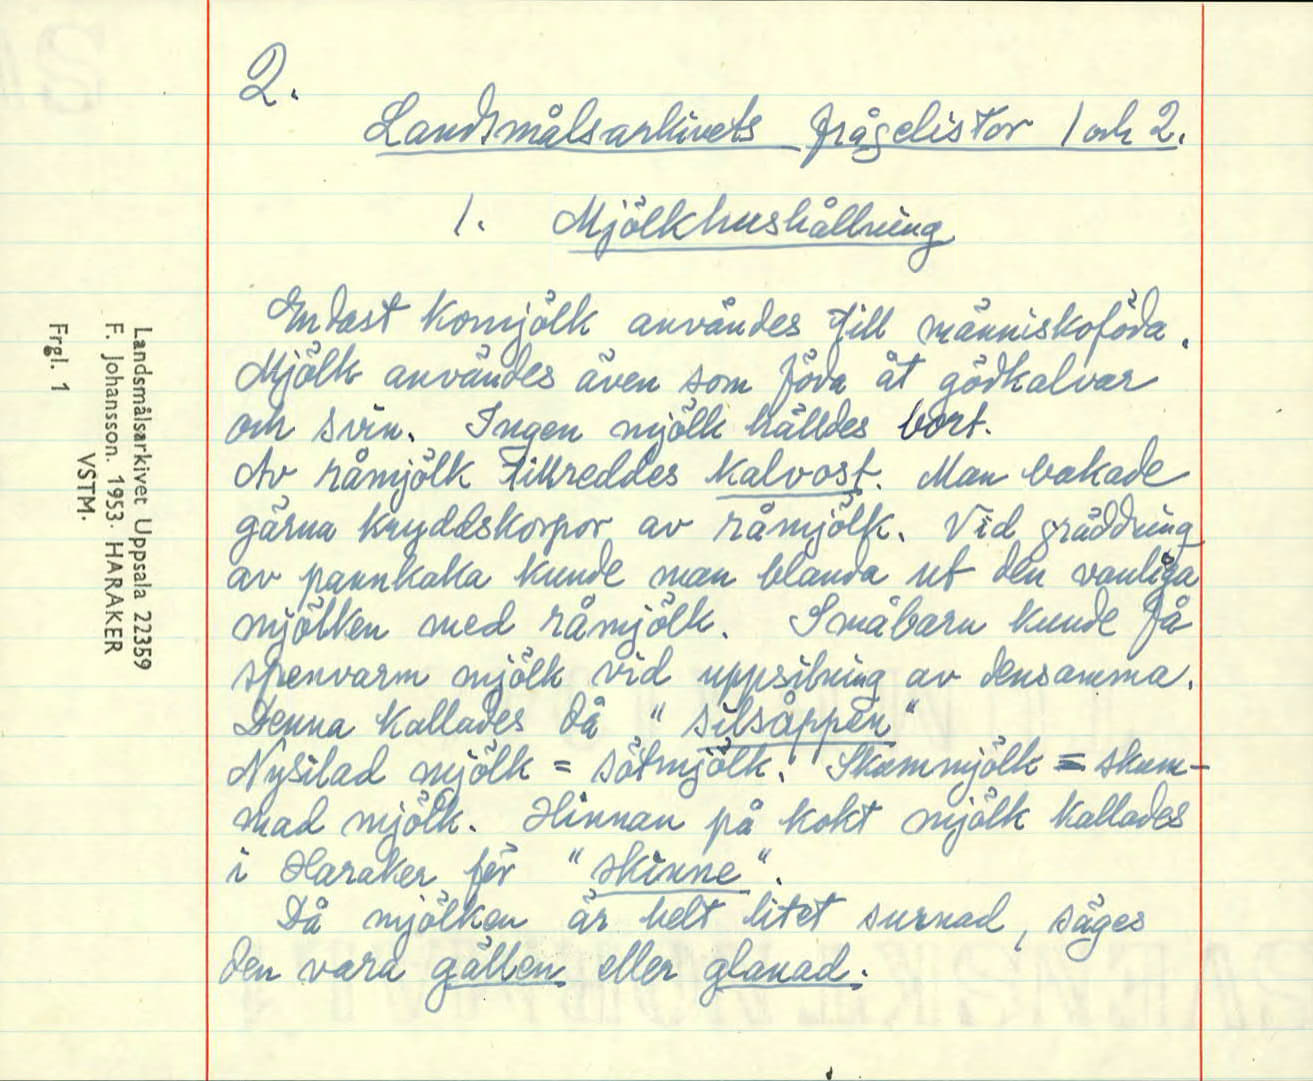 2.
Landsmålsarkivets frågelistor 1 och 2.
1. Mjölkhushållning
Endast komjölk användes till människoföda.
Mjölk användes även som föda åt gödkalvar
och svin. Ingen mjölk hälldes bort.
Av råmjölk tillreddes kalvost. Man bakade
gärna kryddskorpor av råmjölk. Vid gräddning
av pannkaka kunde man blanda ut den vanliga
mjölken med råmjölk. Småbarn kunde få
spenvarm mjölk vid uppsilning av densamma.
Denna kallades då "silsöppen"
Nysilad mjölk = sötmjölk. Skummjölk = skum-
mad mjölk. Hinnan på kokt mjölk kallades
i Haraker för "skinne".
Då mjölken är helt litet surnad, säges
den vara gällen eller glanad.
Landsmålsarkivet Uppsala 22359
F. Johansson. 1953. HARAKER
VSTM.
Frgl. 1